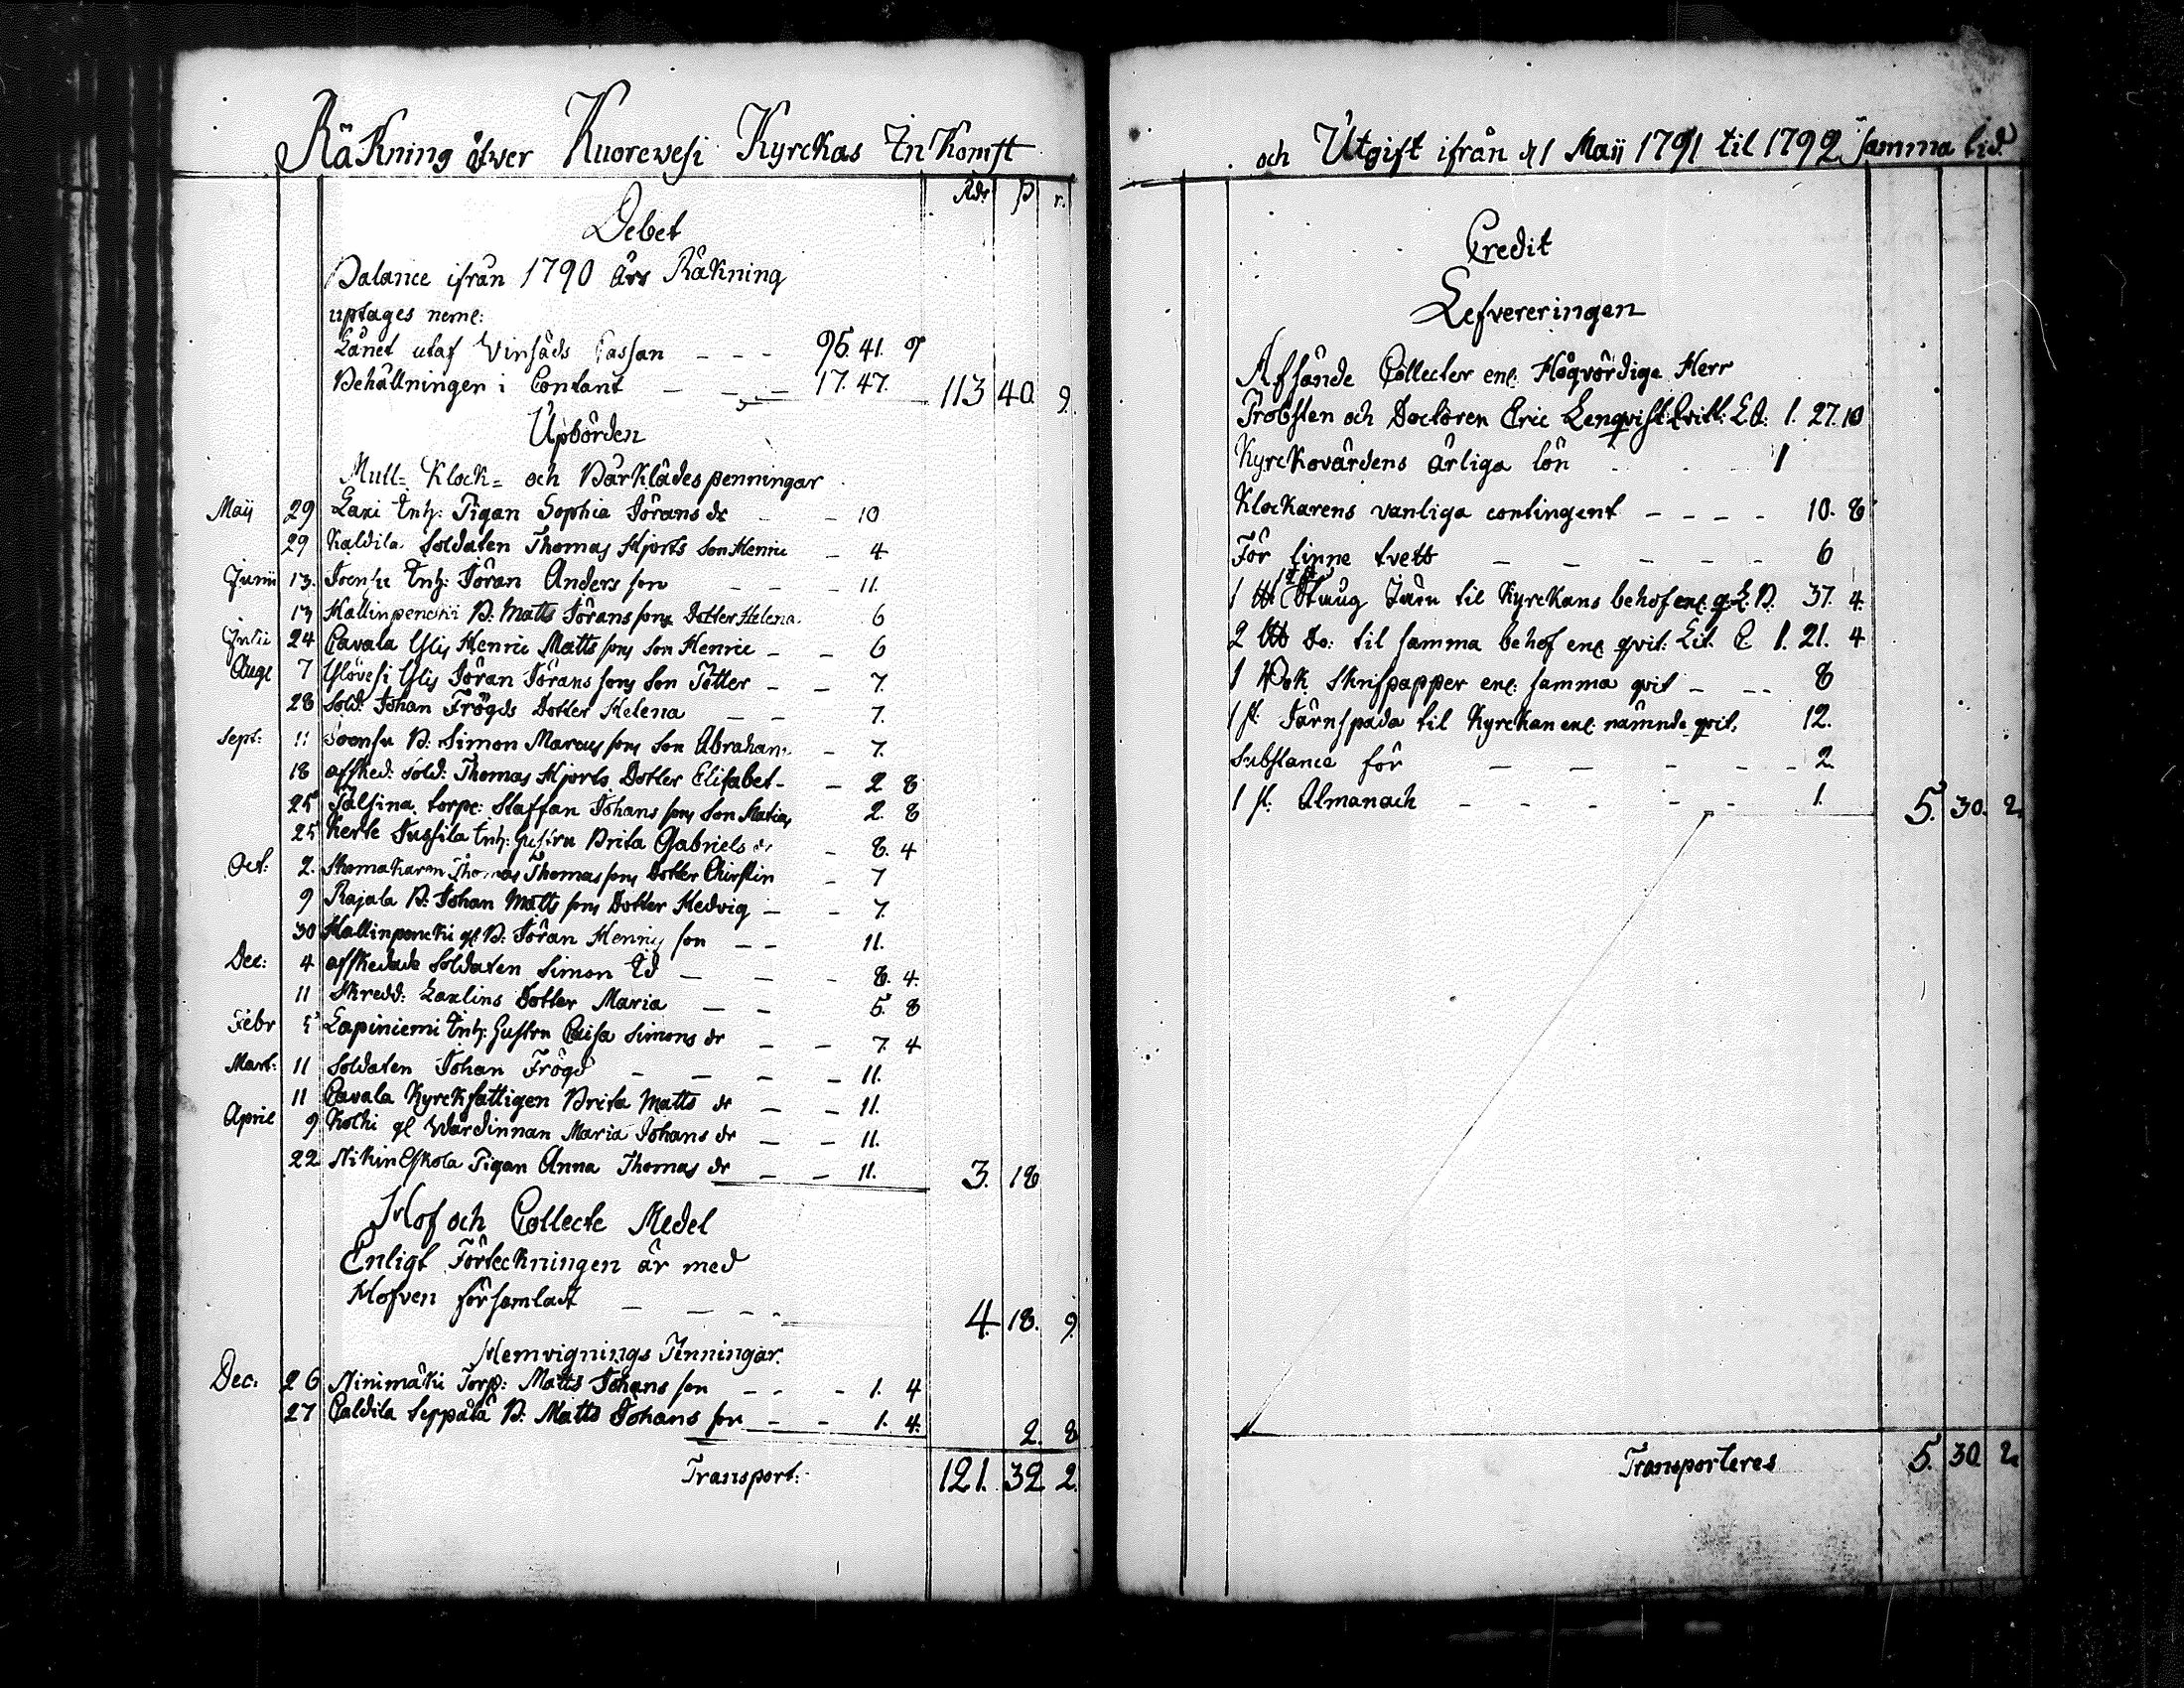 Räkning öfwer Kuorewesi Kyrckas InKomst
Rdr ß r.
Debet
Balance ifrån 1790 års Räkning
uptages neml:
Lånet utaf Winsäds Cassan - - - 95. 41. 9
Behållningen i Contant - - - 17. 47. 113 40. 9.
Upbörden
Mull= Klock= och Bårklädespenningar
Maij 29 Laxi Inh: Pigan Sophia Jörans dr - - 10
29 Kaldila Soldaten Thomas Hjorts Son Henric - 4
Junii 13. Inh: Jöran Anders son - - - 11.
13 Hallinpencki B: Matts Jöranssons Dotter Helena. 6
Julii 24 Cavala Ylis Henric Mattssons Son Henric - - 6
Aug 7 Ylövesi Ylis Jöran Jöranssons Son Petter - - 7.
28 Sold: Johan Frögds Dotter Helena - - 7.
Sept: 11 B: Simon Marcussons Son Abraham - 7.
18 afsked: Sold: Thomas Hjorts Dotter Elisabet - - 2 8
25 torp: Staffan Johanssons Son Matias 2. 8
25 Kerte Jussila Inh: Hustru Brita Gabriels dr - 8. 4
Oct: 2. Skomakaren Thomas Thomassons Dotter Christin - 7
9 Rajala B: Johan Mattssons Dotter Hedvig - - 7.
30 Hallinpencki gl B: Jöran Henrics son - - 11.
Dec: 4 afskedade Soldaten Simon Ed - - - 8. 4.
11 Skredd: Laxlins Dotter Maria - - 5 8
Febr 5 Lapiniemi Inh: Hustru Caisa Simons dr - - 7. 4
Mart: 11 Soldaten Johan Frögd - - - - 11.
11 Cavala Kyrckfattigen Brita Matts dr - - 11.
April 9 gl Wärdinnan Maria Johans dr - - 11.
22 Nikin Eskola Pigan Anna Thomas dr - - 11. 3. 18
Hof och Collecte Medel
Enligt Förteckningen är med
Hofven församladt - - - - 4. 18. 9.
Hemvignings Penningar.
Dec: 26 Ninimäki Torp: Matts Johans son - - - 1. 4
27 Caldila Seppälä B: Matts Johans son - - 1. 4. 2. 8
Transport: 121. 32 2.
och Utgift ifrån d 1 Maij 1791 til 1792 samma tid.
Credit
Lefvereringen
Afsände Collecter enl: Högvördige Herr
Probsten och Doctoren Eric Lenqvist: Qvitt: L A: 1. 27. 10
Kyrckovärdens årliga lön . . . 1
Klockarens vanliga contingent - - - - 10. 8
För linne tvett - - - - - 6
1 Jern til Kyrckans behof enl: q: L. B. 37. 4.
2 do: til samma behof enl: qvit: Lit. C 1. 21. 4
1 Bok Skrifpapper enl: samma qvit - - - 8
1 st: Järnspada til Kyrckan enl: nämnde qvit. 12.
Substance för - - - - - 2
1 st: Almanach - - - - - 1. 5. 30. 2.
Transporteres 5. 30 2.